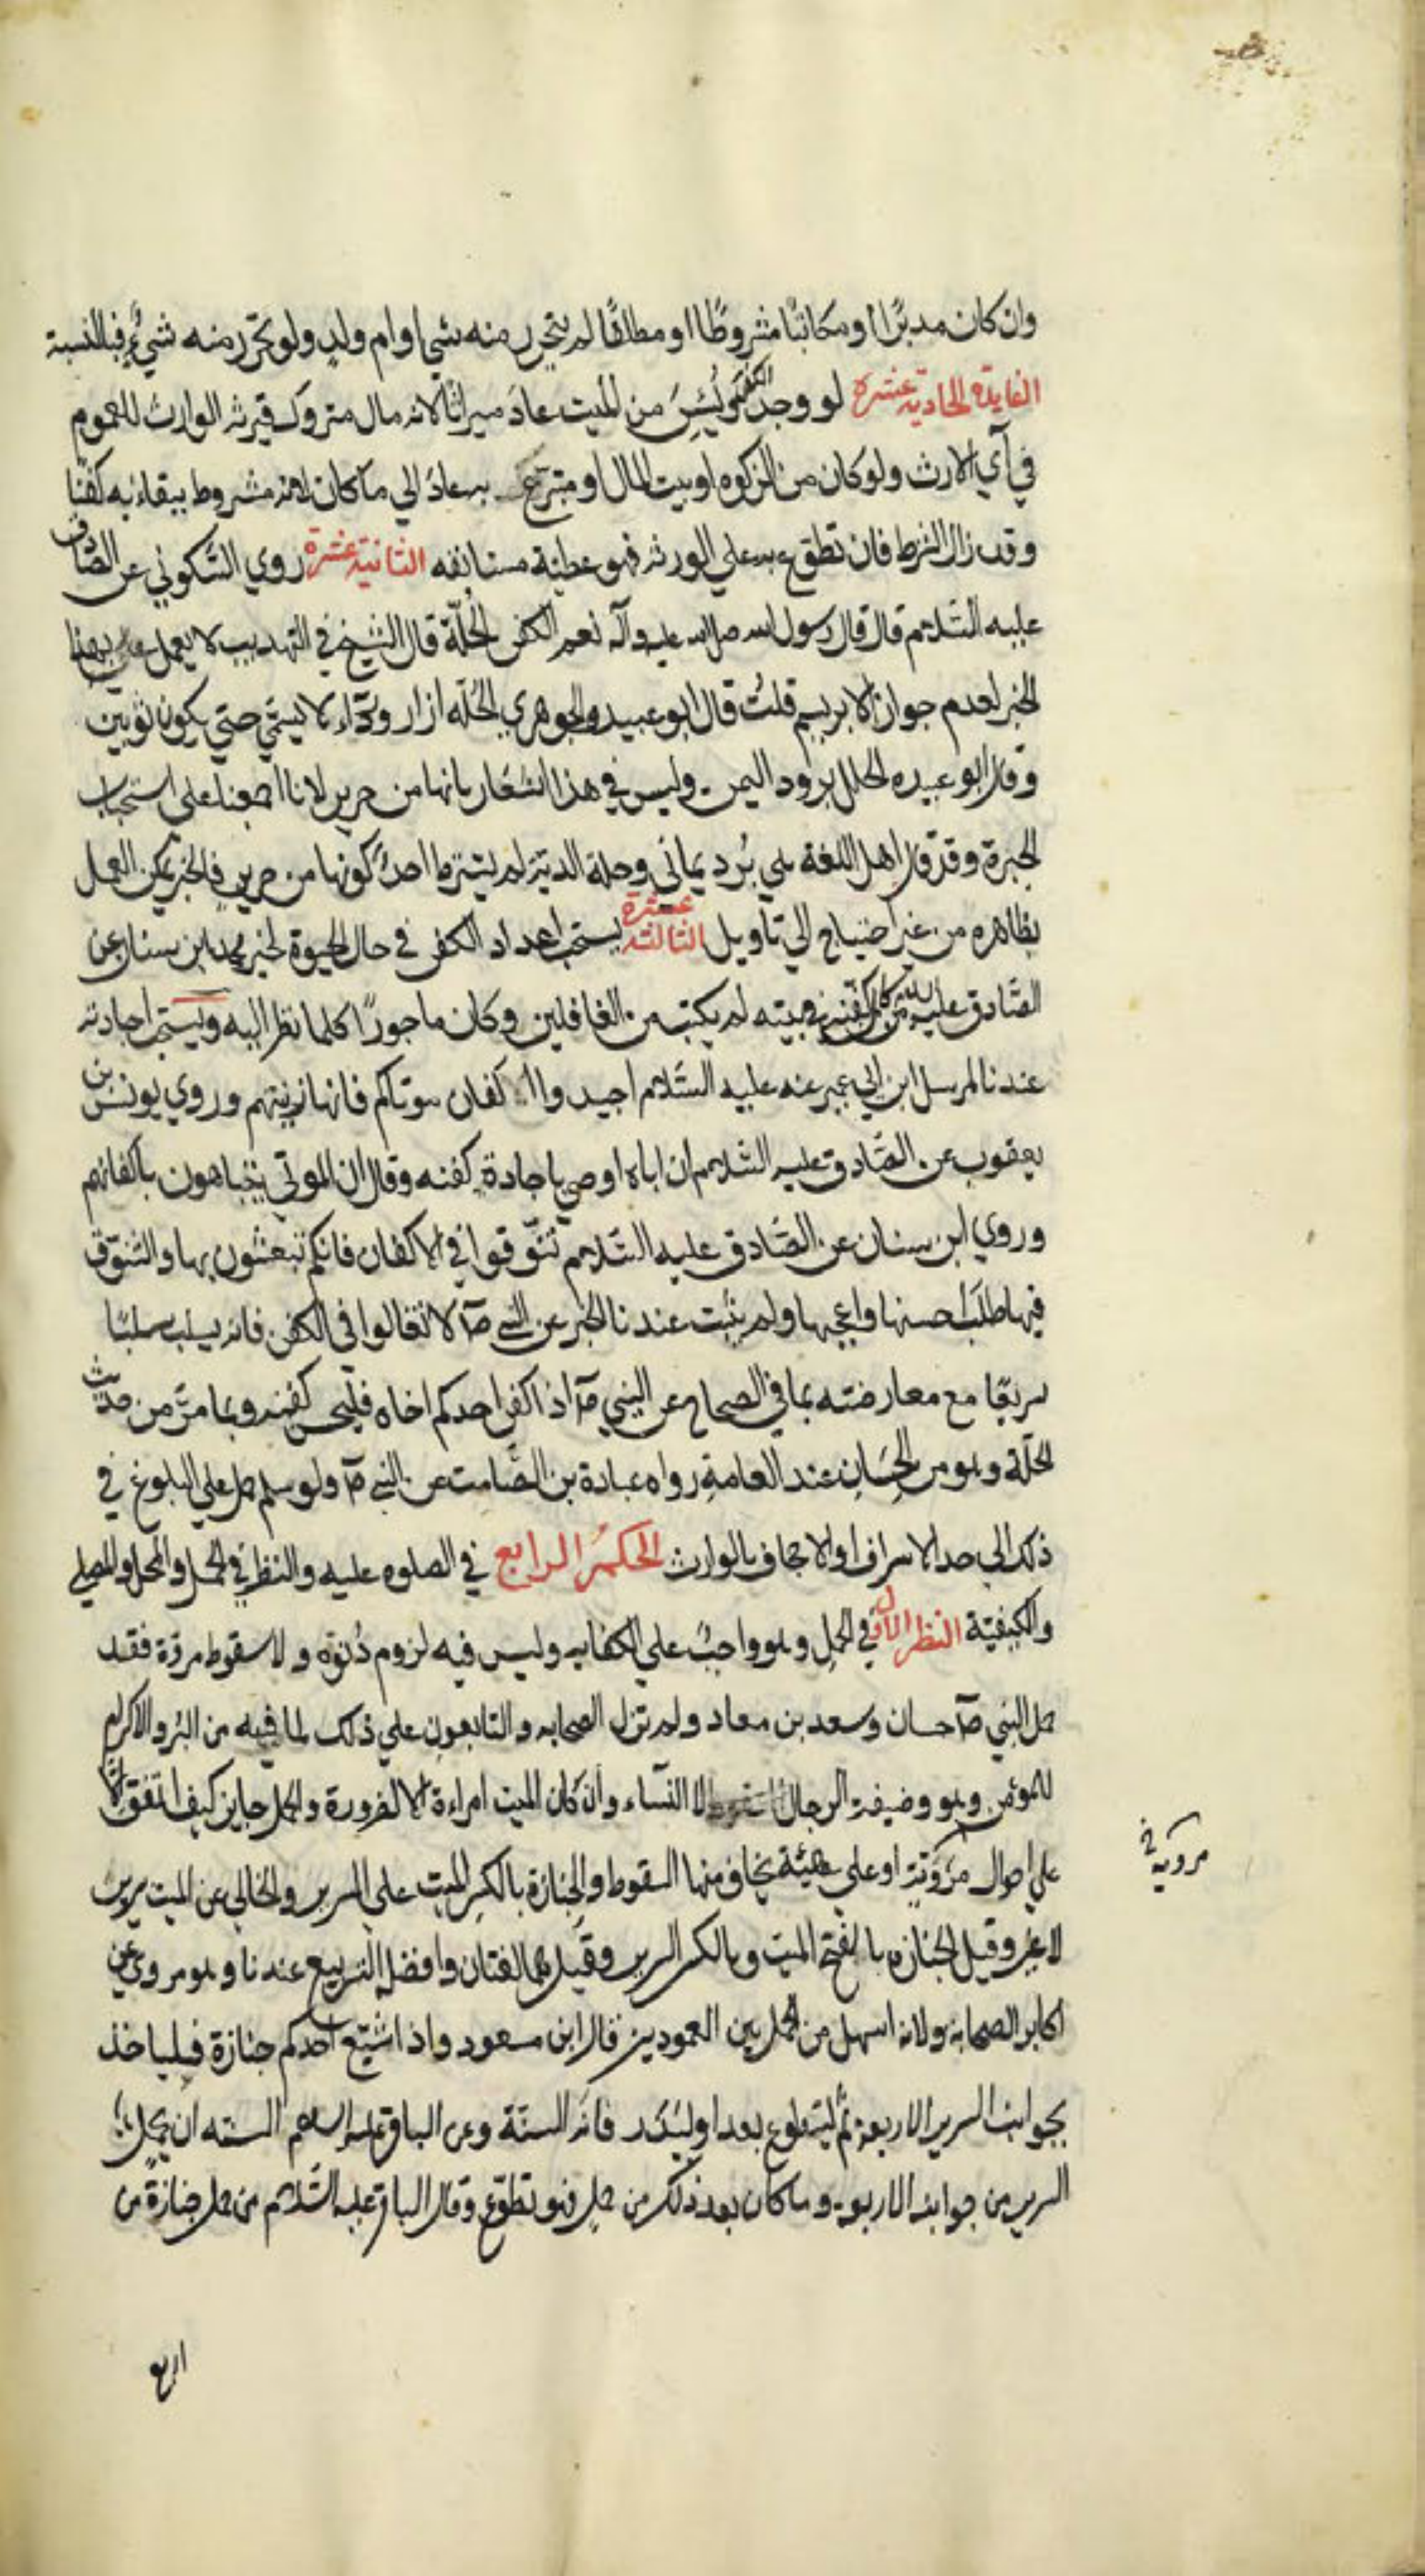 وان كان مدبرًا او مكاتبًا مشروطًا او مطلقًا لم يتحرر منه شي او ام ولدٍ ولو تحرّر منه شيءٌ فبالنسبة
الفايدة الحادية عشره لو وجد الكفن ويُئِسَ من الميت عادَ ميراثًا لانه مال متروك فيرثه الوارث للعموم
في آي الارث ولو كان من الزكوه او بيت المال او متبرّع به عادَ الي ما كان لانه مشروط ببقائه كفنًا
وقد زال الشرط فان تطوّع به علي الورثه فهو عطيّة مستانفه الثانية عشرة روي السّكوني عن الصّادق
عليه السّلام قال قال رسول الله صلى الله عليه وآله نعم الكفن الحُلّة قال الشيخ في التهذيب لا يعمل بهذا
الخبر لعدم جواز الابريسم قلتُ قال ابو عبيد والجوهري الحُلّه ازار وردآء لا يسمّي حتي يكون ثوبين
وقال ابو عبيده الحلل برود اليمن وليس في هذا اشعار بانها من حرير لانا اجمعنا علي استحباب
الحبرة وقد قال اهل اللغة هي بُرد يماني وحلة الدية لم يشترط احدٌ كونها من حريرٍ فالخبر يمكن العمل
بظاهره من غير احتياج الي تاويل الثالثة عشرة يستحب اعداد الكفن في حال الحيوة لخبر محمد بن سنان عن
الصّادق عليه السلام من كان كفنه في بيته لم يكتب من الغافلين وكان ماجورًا كلما نظر اليه ويستحب اجادته
عندنا لمرسل ابن ابي عمير عنه عليه السّلام اجيدوا اكفان موتاكم فانها زينتهم وروي يونس بن
يعقوب عن الصّادق عليه السّلام ان اباه اوصي باجادة كفنه وقال ان الموتي يتباهون باكفانهم
وروي ابن سنان عن الصّادق عليه السّلام تنوّقوا في الاكفان فانكم تبعثون بها والتنوّق
فيها طلب احسنها واعجبها ولم يثبت عندنا الخبر عن النبي صآ لا تغالوا في الكفن فانه يسلب سلبًا
سريعًا مع معارضته بما في الصحاح عن النبي صآ اذا كفن احدكم اخاه فليحسن كفنه وبما مرّ من حديث
الحلّة وهو من الحِسَان عند العامةِ رواه عبادة بن الصّامت عن النبي صآ ولو سلم حمل علي البلوغ في
ذلك الي حد الاسراف او الاجحاف بالوارث الحكم الرابع في الصلوه عليه والنظر في الحمل والمحل والمصلي
والكيفيّة النظر الاول في الحمل وهو واجبٌ علي الكفايه وليس فيه لزوم دُنوّه ولا سقوط مروة فقد
حمل النبي صآ جنازة سعد بن معاد ولم تزل الصحابه والتابعون علي ذلك لما فيه من البر والاكرام
للمؤمن وهو وضيفة الرجال لا النسآء وان كان الميت امراءة الا لضرورة والحمل جايز كيف اتفق لا
علي احوال مزرية او علي هيئة يخاف منها السقوط والجنازة بالكسر الميت علي السرير والخالي عن الميت سرير
لا غير وقيل الجنازه بالفتح الميت وبالكسر السرير وقيل هما لغتان وافضله التربيع عندنا وهو مروي عن
اكابر الصحابه ولانه اسهل من الحمل بين العمودين قال ابن مسعود واذا اشيّع احدكم جنازة فليا خذ
بجوانب السرير الاربعة ثم ليتطوع بعد او ليذر فانه السنّة وعن الباقر عليه السلام السنه ان يحمل
السرير من جوانبه الاربعة وما كان بعد ذلك من حمل فهو تطوّع وقال الباقر عليه السّلام من حمل جنازة من
اربع